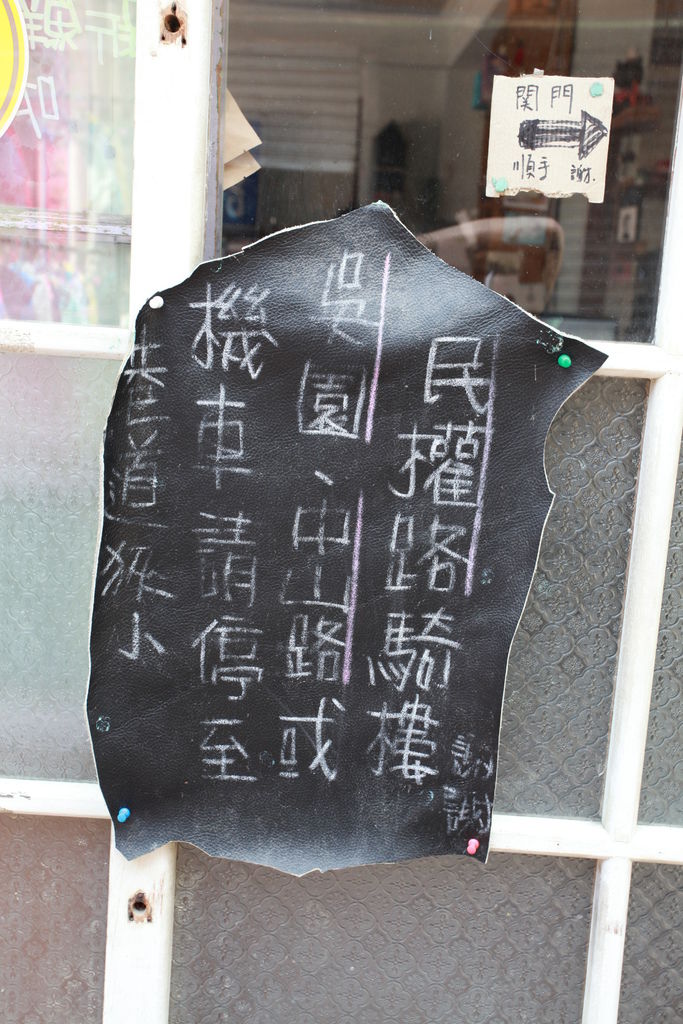 関門
順手 謝.
巷道狹小
機車請停至
吳園、中山路或
民權路騎樓
謝謝